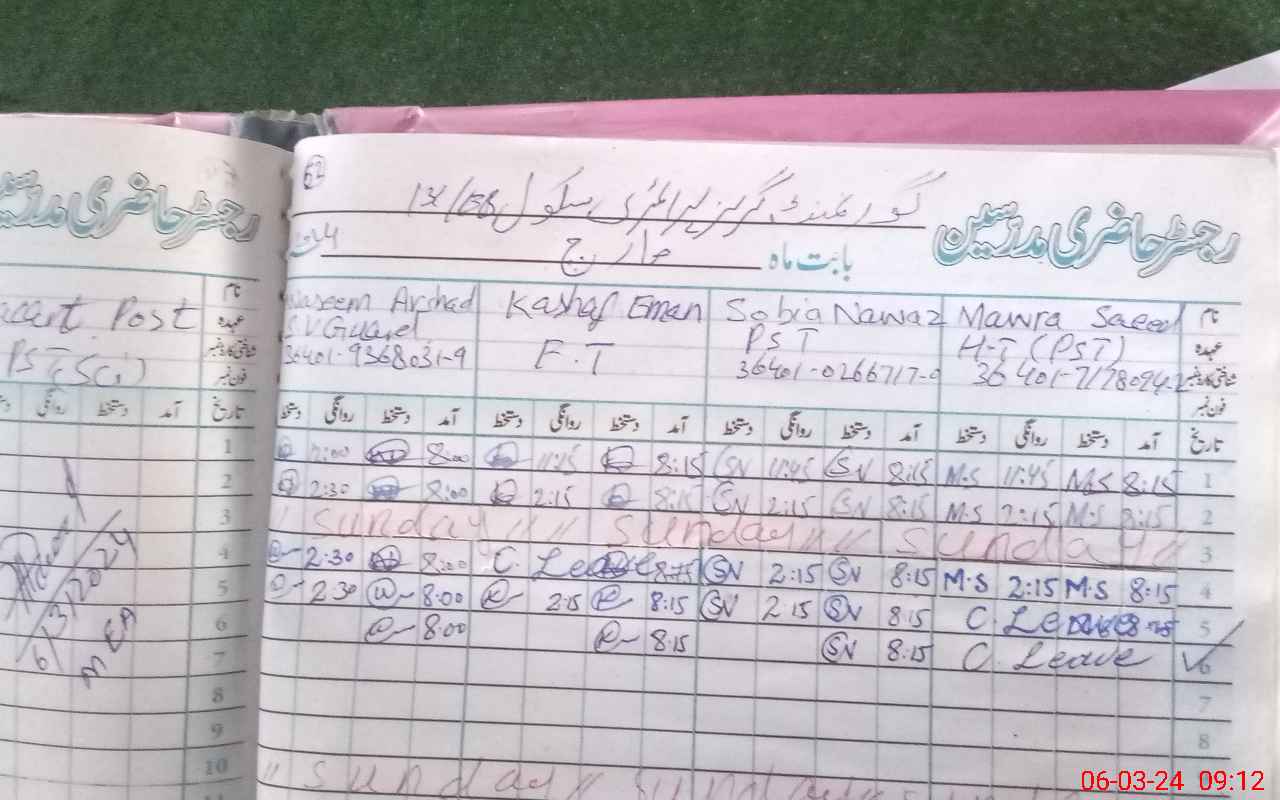 رجسٹر حاضری مدرسین
گورنمنٹ گرلز پرائمری سکول
62
بابت ماہ مارچ
نام Mawra Saeed Sobia Nawaz Kashaf Eman Waseem Arshad
عہدہ H-T (PST) PST E.T S.V Guard
شناختی کارڈ نمبر 36401-0266717-0 36401-9368031-9
فون نمبر
تاریخ آمد دستخط روانگی دستخط آمد دستخط روانگی دستخط آمد دستخط روانگی دستخط آمد دستخط روانگی دستخط
1 8:15 M.S 11:45 M.S 8:15 SN 11:45 SN 8:15 11:45 8:00
2 8:15 M.S 2:15 M.S 8:15 SN 2:15 SN 8:15 2:15 8:00 2:30
3 " Sunday " " Sunday " " Sunday "
4 8:15 M.S 2:15 M.S 8:15 SN 2:15 SN C. Leave 8:00 2:30
5 C. Leave 8:15 SN 2:15 SN 8:15 2:15 8:00 2:30
6 C. Leave 8:15 SN 8:15 8:00
7
8
" Sunday " Sunday
رجسٹر حاضری مدرسین
نام Post
عہدہ PST (Sci)
شناختی کارڈ نمبر
فون نمبر
تاریخ آمد دستخط روانگی دستخط
1
2
3
4
5
6
7
8
9
10
6/3/2024
MEA
06-03-24 09:12